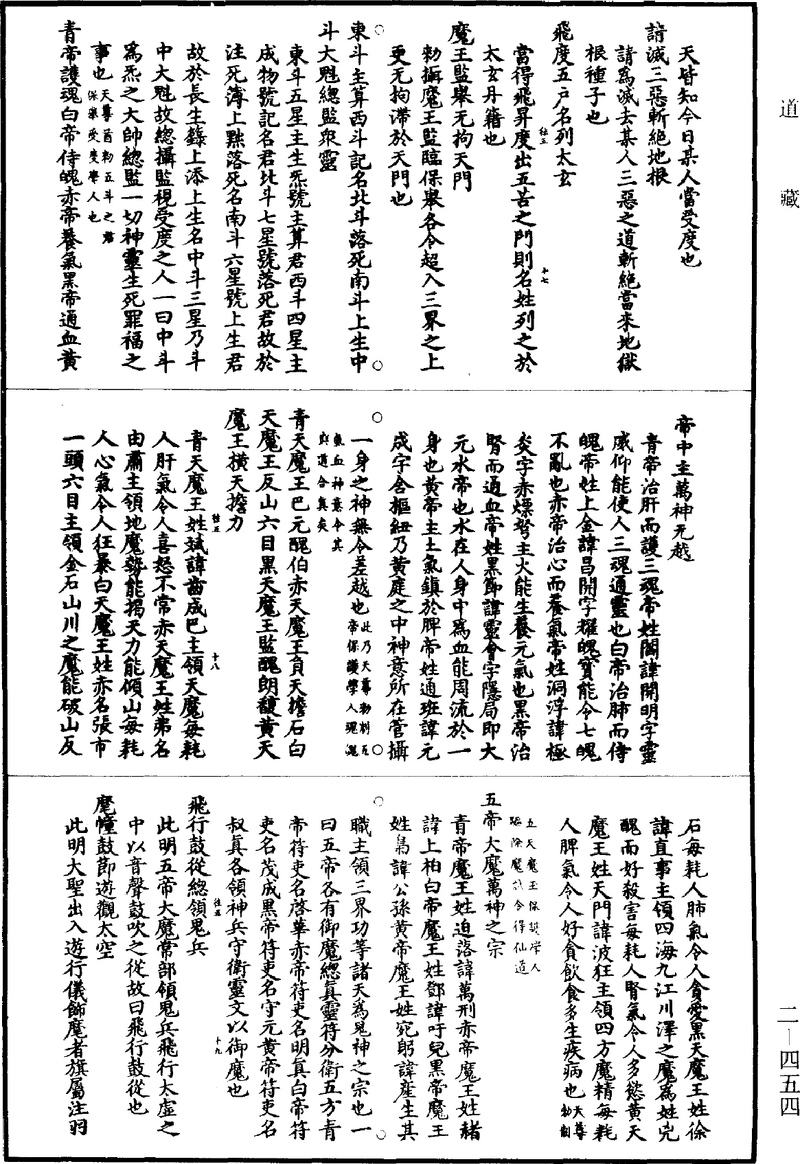 道藏
天皆知今日某人當受度也
請滅三惡斬絕地根
請爲滅去某人三惡之道斬絕當來地獄
根種子也
飛度五戶名列太玄
當得飛昇度出五苦之門則名姓列之於
太玄丹籍也
魔王監舉无拘天門
勑攝魔王監臨保舉各令超入三界之上
更无拘滯於天門也
東斗主算西斗記名北斗落死南斗上生中
斗大魁總監衆靈
東斗五星主生炁號主算君西斗四星主
成物號記名君北斗七星號落死君故於
注死薄上黜落死名南斗六星號上生君
故於長生錄上添上生名中斗三星乃斗
中大魁故總攝監視受度之人一曰中斗
爲炁之大帥總監一切神靈生死罪福之
事也天尊首勑五斗之君保舉受度學人也
青帝護魂白帝侍魄赤帝養氣黑帝通血黃
帝中主萬神无越
青帝治肝而護三魂帝姓閻諱開明字靈
威仰能使人三魂通靈也白帝治肺而侍
魄帝姓上金諱昌開字耀魄寶能令七魄
不亂也赤帝治心而養氣帝姓洞浮諱極
炎字赤熛弩主火能生養元氣也黑帝治
腎而通血帝姓黑節諱靈會字隱局即大
元水帝也水在人身中爲血能周流於一
身也黃帝主土氣鎮於脾帝姓通班諱元
成字含樞紐乃黃庭之中神意所在管攝
一身之神無令差越也此乃天尊勑制五帝保護學人魂魄氣血神意令其與道合真矣
青天魔王巴元醜伯赤天魔王負天擔石白
天魔王反山六目黑天魔王監醜朗馥黃天
魔王橫天擔力
青天魔王姓斌諱啬成巴主領天魔每耗
人肝氣令人喜怒不常赤天魔王姓弗名
由肅主領地魔勢能揭天力能傾山每耗
人心氣令人狂暴白天魔王姓赤名張市
一頭六目主領金石山川之魔能破山反
石每耗人肺氣令人貪愛黑天魔王姓徐
諱直事主領四海九江川澤之魔爲姓兇
醜而好殺害每耗人腎氣令人多慾黃天
魔王姓天門諱波狂主領四方魔精每耗
人脾氣令人好貪飲食多生疾病也天尊勑制
五天魔王保護學人
除魔試令得仙道
五帝大魔萬神之宗
青帝魔王姓迫洛諱萬刑赤帝魔王姓赭
諱上柏白帝魔王姓鄧諱吁兒黑帝魔王
姓諱公孫黃帝魔王姓究躬諱產生其
職主領三界功等諸天爲鬼神之宗也一
曰五帝各有御魔總眞靈符分衛五方青
帝符吏名啓華赤帝符吏名明眞白帝符
吏名茂成黑帝符吏名守元黃帝符吏名
叔眞各領神兵守衛靈文以御魔也
飛行鼓從總領鬼兵
此明五帝大魔常部領鬼兵飛行太虛之
中以音聲鼓吹之從故曰飛行鼓從也
麾幢鼓節遊觀太空
此明大聖出入遊行儀飾麾者旗屬注羽
十七
十八
十九
二—四五四